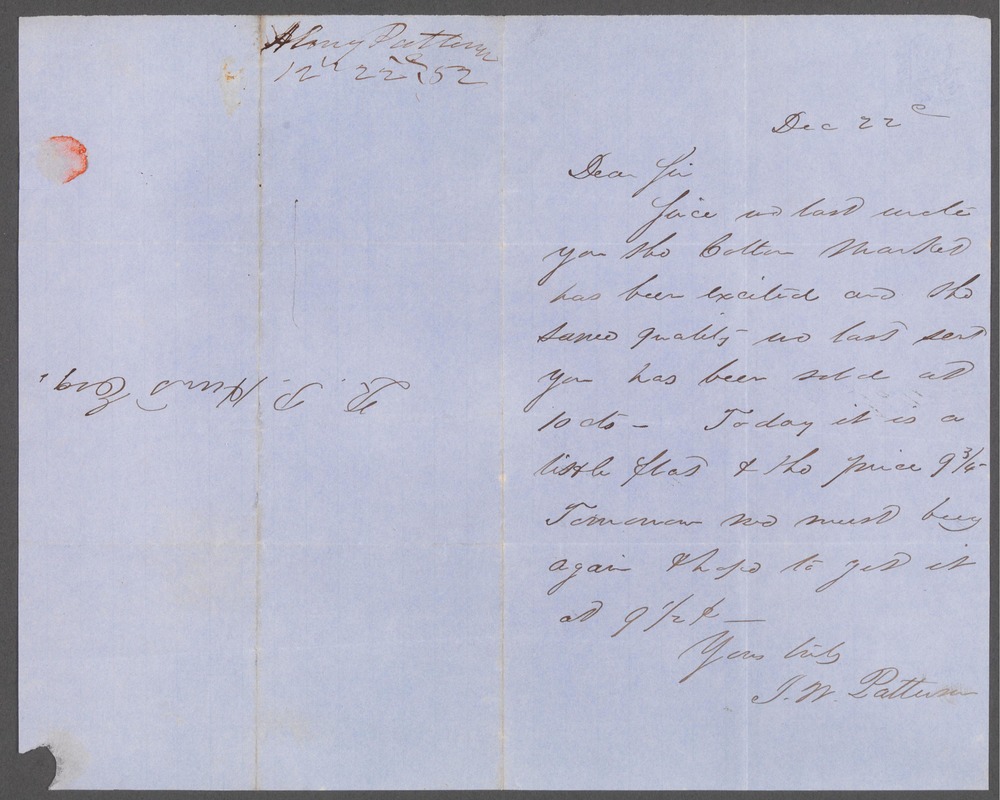 Patterson
12 22 52
Dec 22
Dear Sir
Since we last wrote
you the Cotton Market
has been excited and the
same quality we last sent
you has been sold at
10 cts – Today it is a
little flat & the price 9 3/4
Tomorrow we must buy
again & hope to get it
at 9 1/2 ¢ –
Yours truly
J. W. Patterson
P. Hurd Esq.